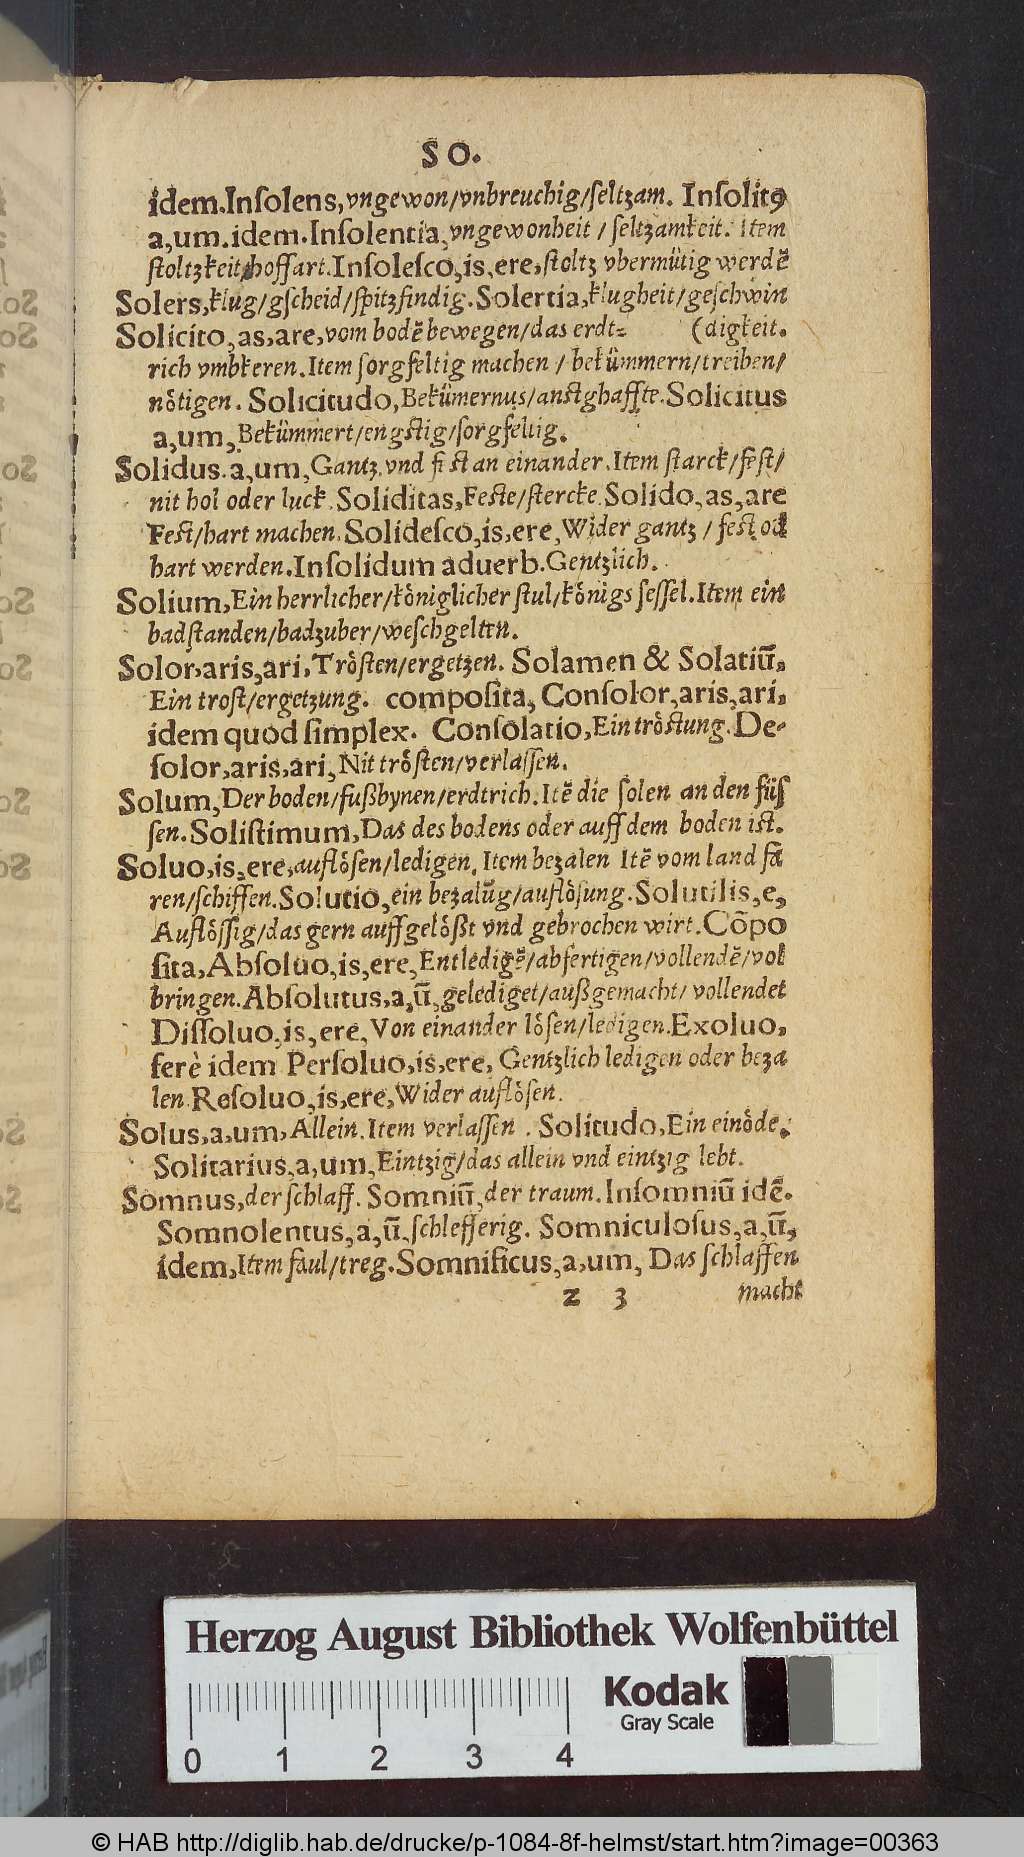 SO.
idem. Insolens, vngewon/vnbreuchig/seltzam. Insolitꝰ
a,um. idem. Insolentia, vngewonheit / seltzamkeit. Item
stoltzkeit hoffart. Insolesco, is, ere, stoltz vbermütig werdē
Solers, klug/gscheid/spitzfindig. Solertia, klugheit/geschwin
Solicito, as, are, vom bodē bewegen/das erdt= (digkeit.
rich vmbkeren. Item sorgfeltig machen / bekümmern/treiben/
nötigen. Solicitudo, Bekümernus/anstghaffte. Solicitus
a,um, Bekümmert/engstig/sorgfeltig.
Solidus. a, um, Gantz vnd fest an einander. Item starck/fest/
nit hol oder luck. Soliditas, Feste/stercke. Solido, as, are
Fest/hart machen. Solidesco, is, ere, Wider gantz / fest od
hart werden. In solidum aduerb. Gentzlich.
Solium, Ein herrlicher/königlicher stul/königs sessel. Item ein
badstanden/badzuber/weschgelten.
Solor, aris, ari, Trösten/ergetzen. Solamen & Solatiū,
Ein trost/ergetzung. composita, Consolor, aris, ari,
idem quod simplex. Consolatio, Ein tröstung. De-
solor, aris, ari, Nit trösten/verlassen.
Solum, Der boden/fußbynen/erdtrich. Itē die solen an den füs
sen. Solistimum, Das des bodens oder auff dem boden ist.
Soluo, is, ere, auflösen/ledigen. Item bezalen Itē vom land fa
ren/schiffen. Solutio, ein bezalūg/auflösung. Solutilis, e,
Auflössig/das gern auffgelößt vnd gebrochen wirt. Cõpo
sita, Absoluo, is, ere, Entledigē/abfertigen/vollendē/vol
bringen. Absolutus, a, ū, gelediget/außgemacht/ vollendet
Dissoluo, is, ere, Von einander lösen/ledigen. Exoluo,
ferè idem Persoluo, is, ere, Gentzlich ledigen oder beza
len. Resoluo, is, ere, Wider auflösen.
Solus, a, um, Allein. Item verlassen . Solitudo, Ein einöde.
Solitarius, a, um, Eintzig/das allein vnd eintzig lebt.
Somnus, der schlaff. Somniū, der traum. Insomniū idē.
Somnolentus, a, ū, schlefferig. Somniculosus, a, ū,
idem, Item faul/treg. Somnificus, a, um, Das schlaffen
z 3 macht
Herzog August Bibliothek Wolfenbüttel
Kodak
Gray Scale
0 1 2 3 4
© HAB http://diglib.hab.de/drucke/p-1084-8f-helmst/start.htm?image=00363